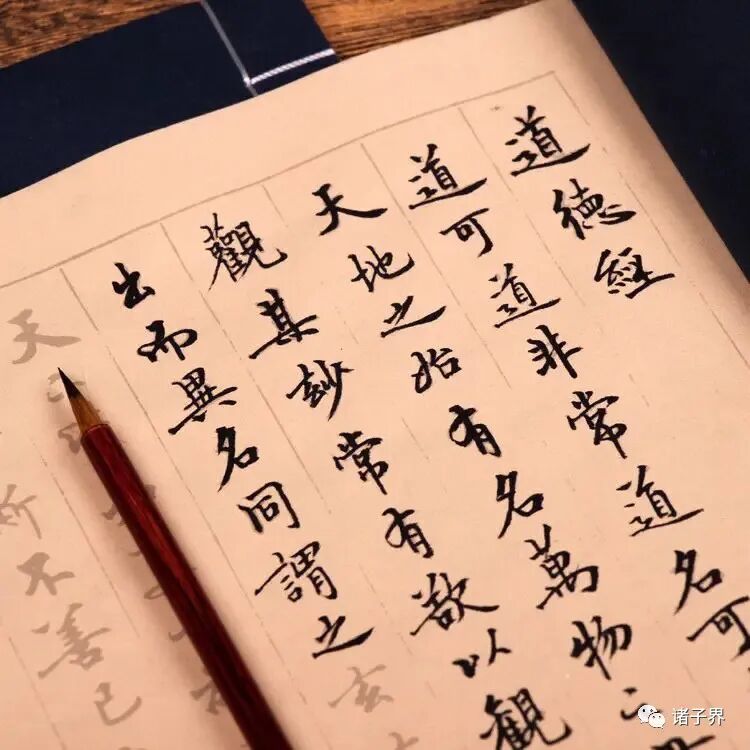 道德經
道可道非常道名可
天地之始有名萬物之
觀其妙常有欲以觀
出而異名同謂之玄
天下皆
斯不善已
诸子界